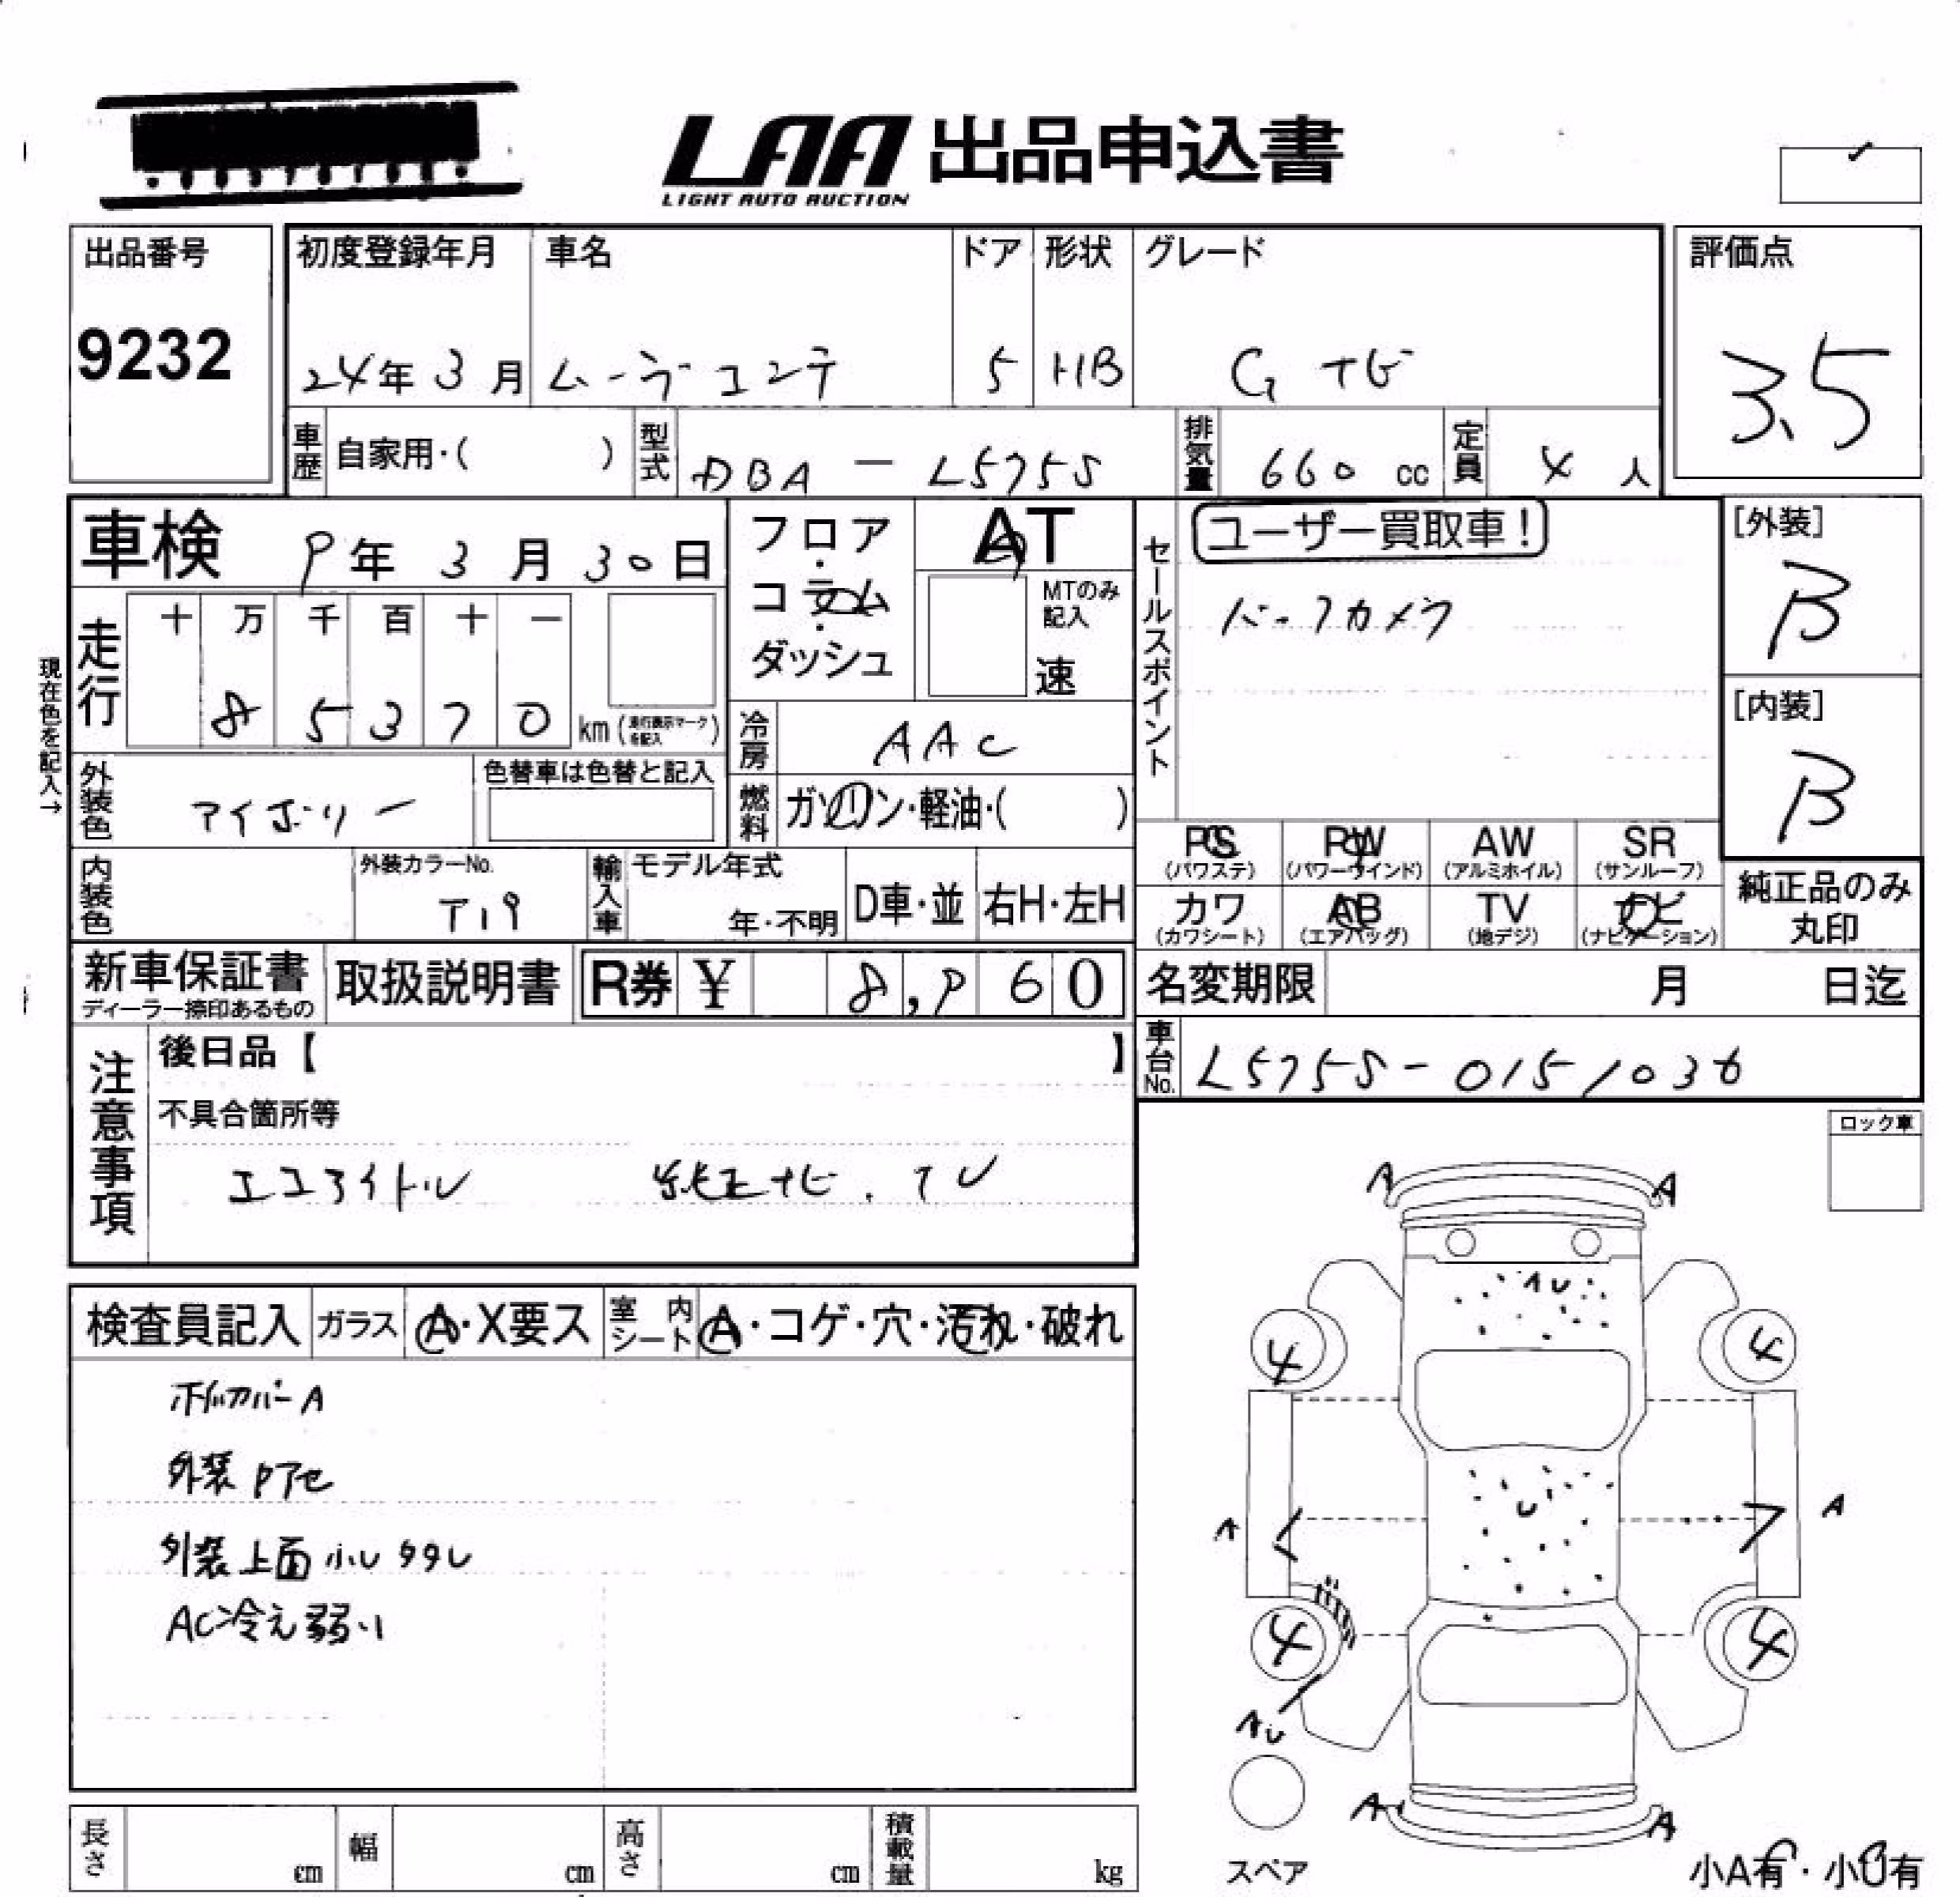 LAA 出品申込書
LIGHT AUTO AUCTION
出品番号
9232
初度登録年月
24年 3月
車名
ムーヴコンテ
ドア
5
形状
HB
グレード
G ナビ
評価点
3.5
車歴
自家用・( )
型式
DBA - L575S
排気量
660 cc
定員
4 人
車検 9年 3月 30日
現在色を記入→
走行
十 万 千 百 十 一
8 5 3 7 0 km (走行表示マークを記入)
フロア・コラム・ダッシュ
AT
MTのみ記入
速
冷房
AAC
燃料
ガソリン・軽油・( )
外装色
アイボリー
色替車は色替と記入
内装色
外装カラーNo.
T19
輸入車
モデル年式
年・不明
D車・並
右H・左H
セールスポイント
ユーザー買取車!
バックカメラ
[外装]
B
[内装]
B
PS
(パワステ)
PW
(パワーウインド)
AW
(アルミホイル)
SR
(サンルーフ)
カワ
(カワシート)
AB
(エアバッグ)
TV
(地デジ)
ナビ
(ナビゲーション)
純正品のみ
丸印
新車保証書
ディーラー捺印あるもの
取扱説明書
R券 ¥ 8,960
名変期限 月 日迄
車台No.
L575S-0151036
注意事項
後日品【 】
不具合箇所等
エコアイドル 純正ナビ.TV
ロック車
検査員記入
ガラス
A・X要ス
室内シート
A・コゲ・穴・汚れ・破れ
ホイルカバーA
外装Pアセ
外装上面小U タタU
AC冷え弱い
A A
AU
4 4
U
A A
4 4
AU
A A
スペア
小A有・小U有
長さ cm
幅 cm
高さ cm
積載量 kg